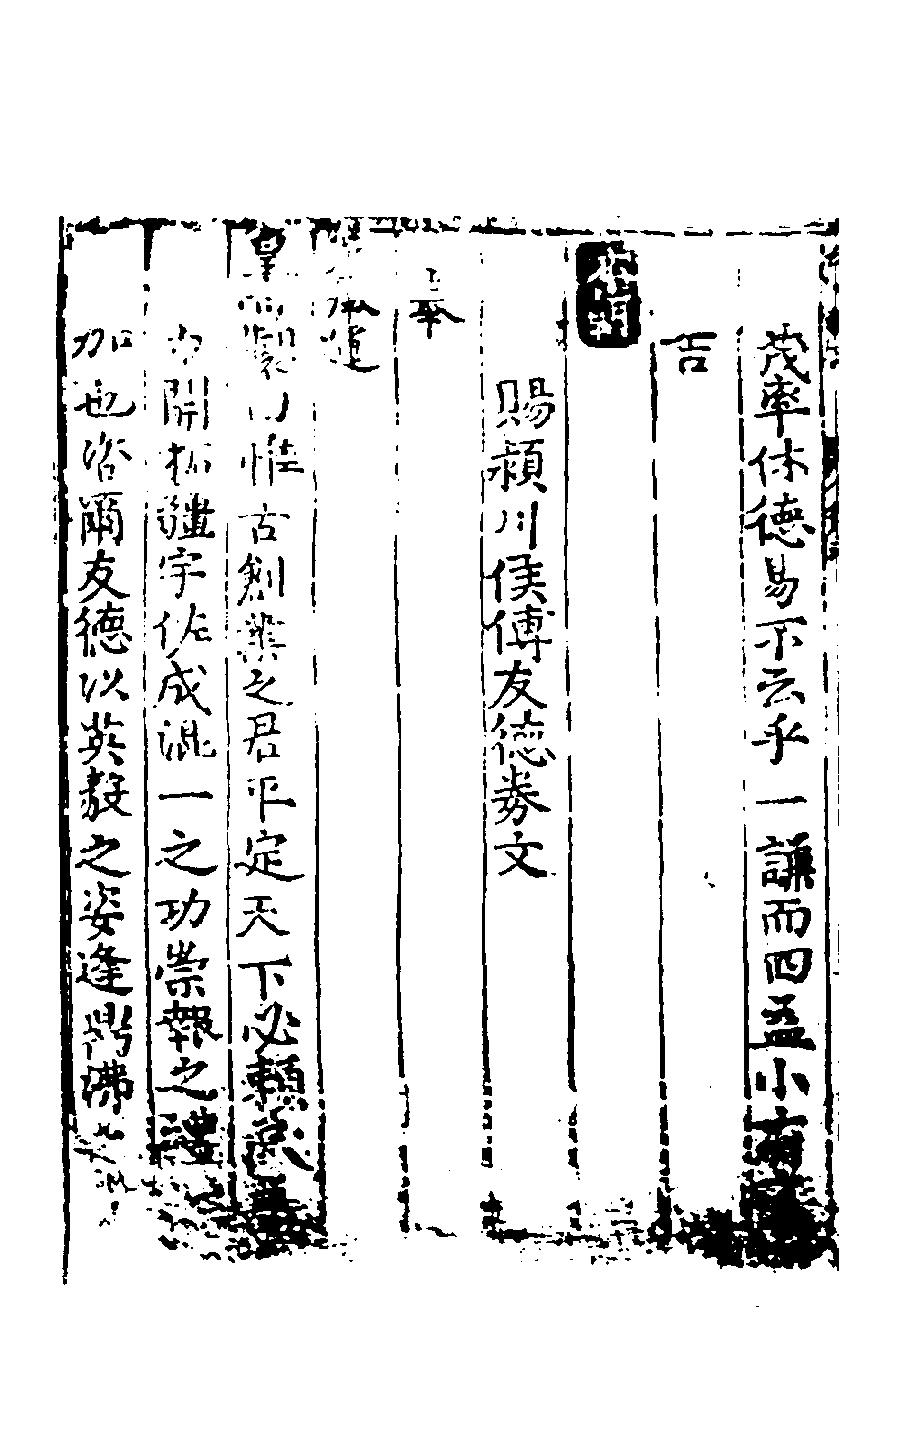 茂率休德易不云乎一謙而四益小有
吉
賜潁川侯傅友德券文
奉
天承運
皇帝制曰惟古創業之君平定天下必賴忠
力開拓疆宇佐成混一之功崇報之禮
加也咨爾友德以英毅之姿逢鼎沸之